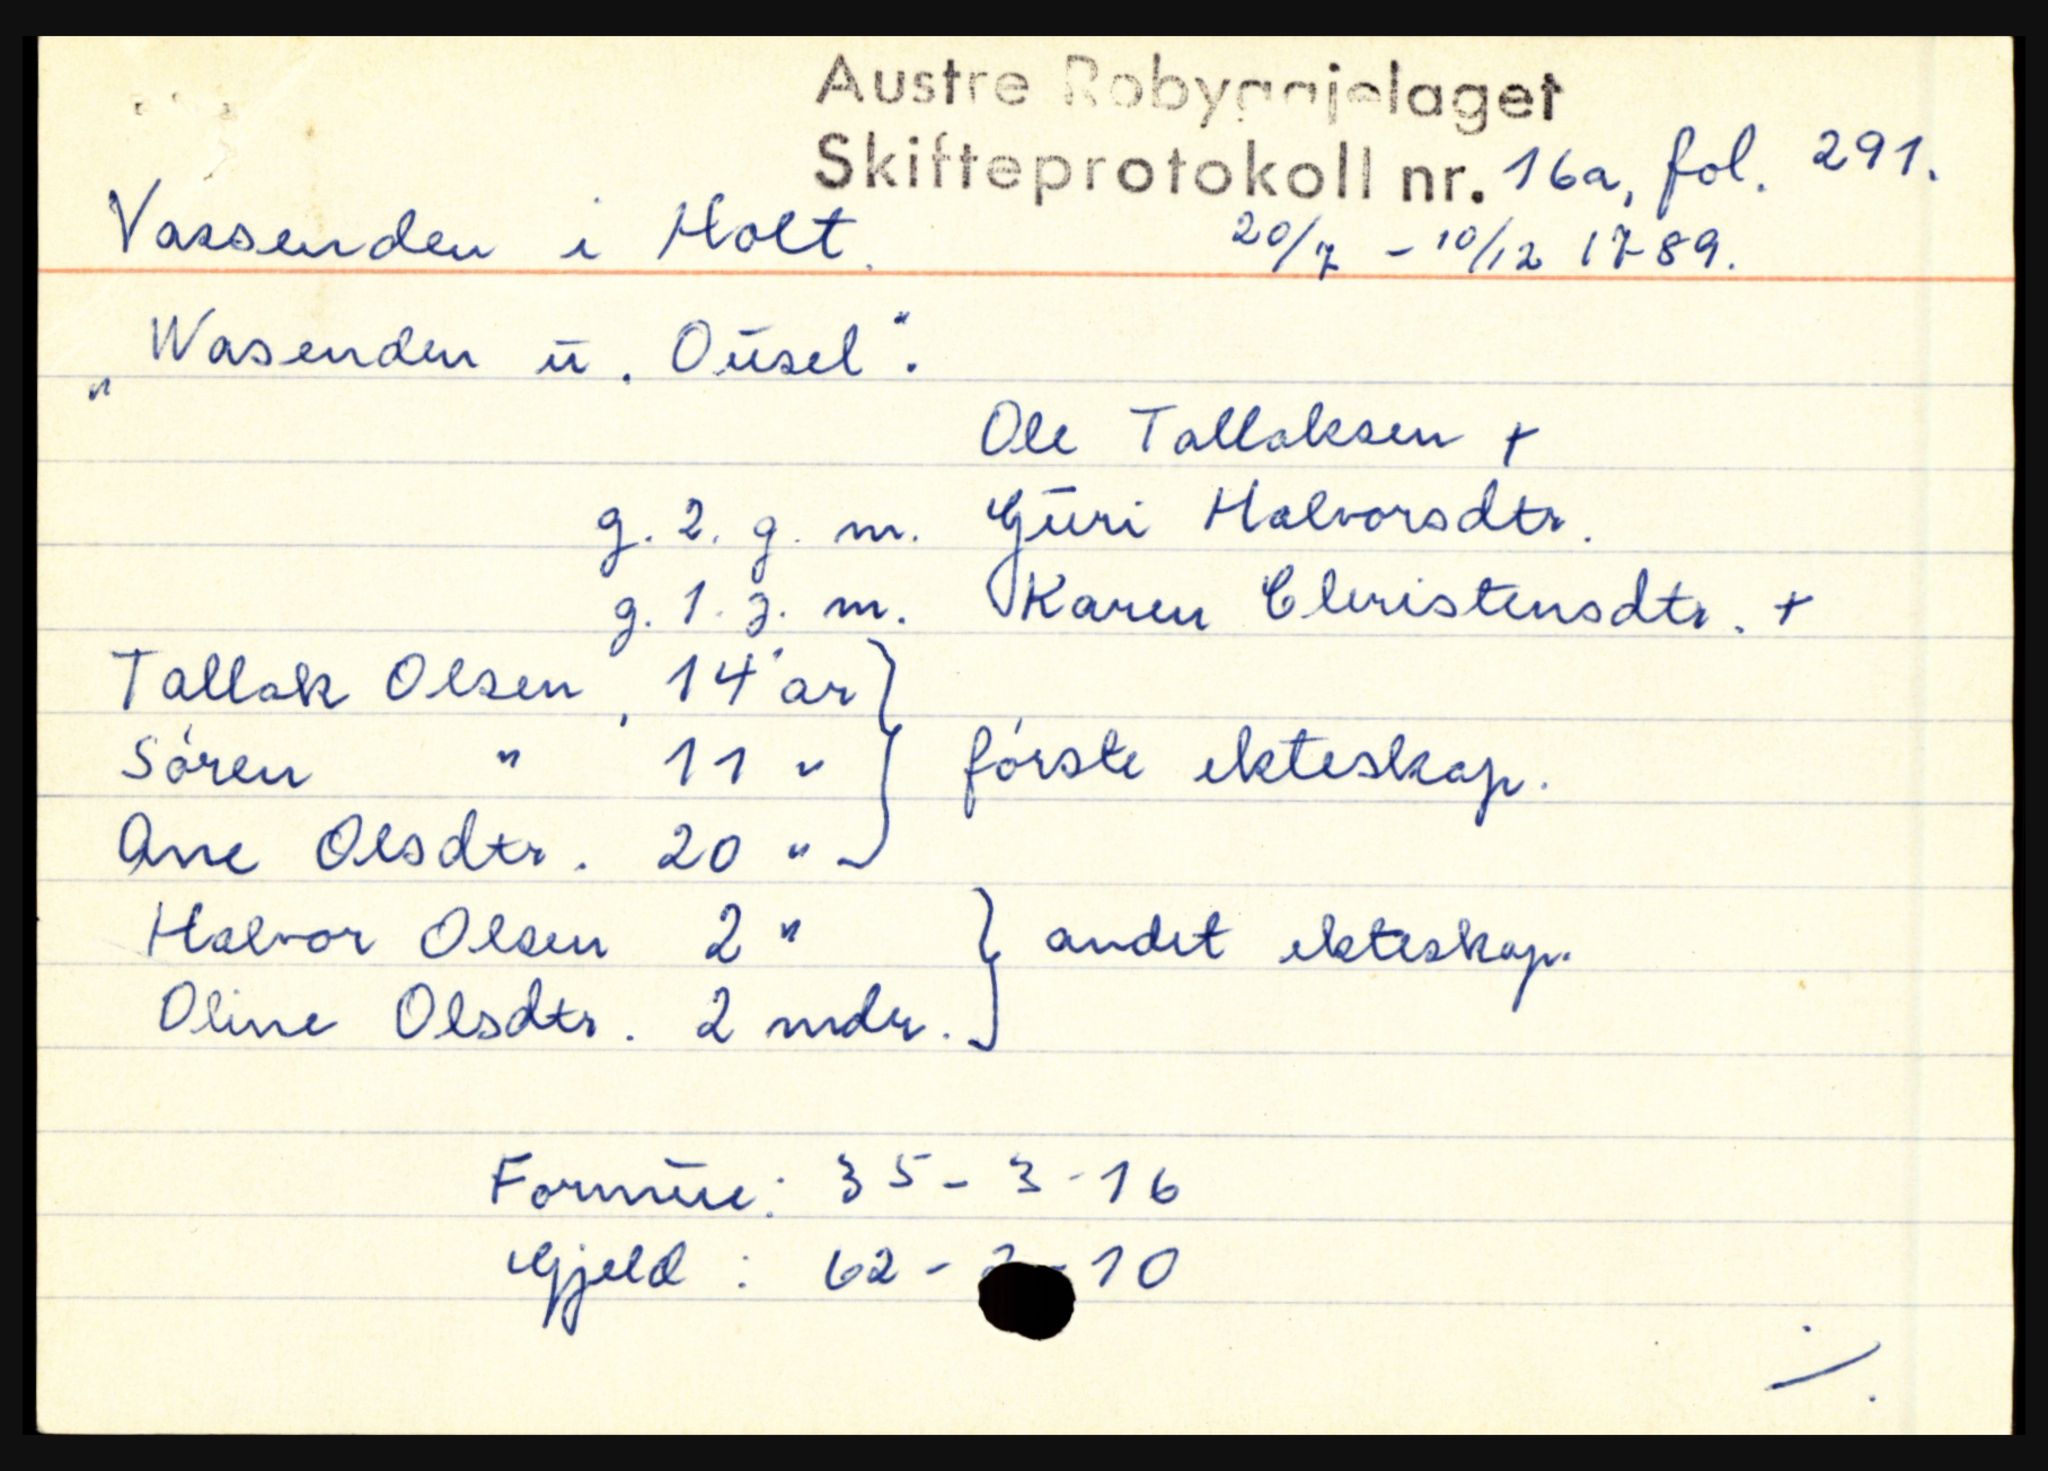 Austre Robyggjelaget
Skifteprotokoll nr. 16a, fol. 291.
Vassenden i Holt. 20/7 - 10/12 1789.
„Wasenden ü. Oüsel".
Ole Tallaksen +
g. 2. g. m. Güri Halvorsdtr.
g. 1. g. m. Karen Christensdtr. +
Tallak Olsen, 14 år
Sóren " 11 " } fórste ekteskap.
Ane Olsdtr. 20 "
Halvor Olsen 2 " } andet ekteskap.
Oline Olsdtr. 2 mdr.
Formüe: 35 - 3 - 16
Gjeld : 62 - - 10